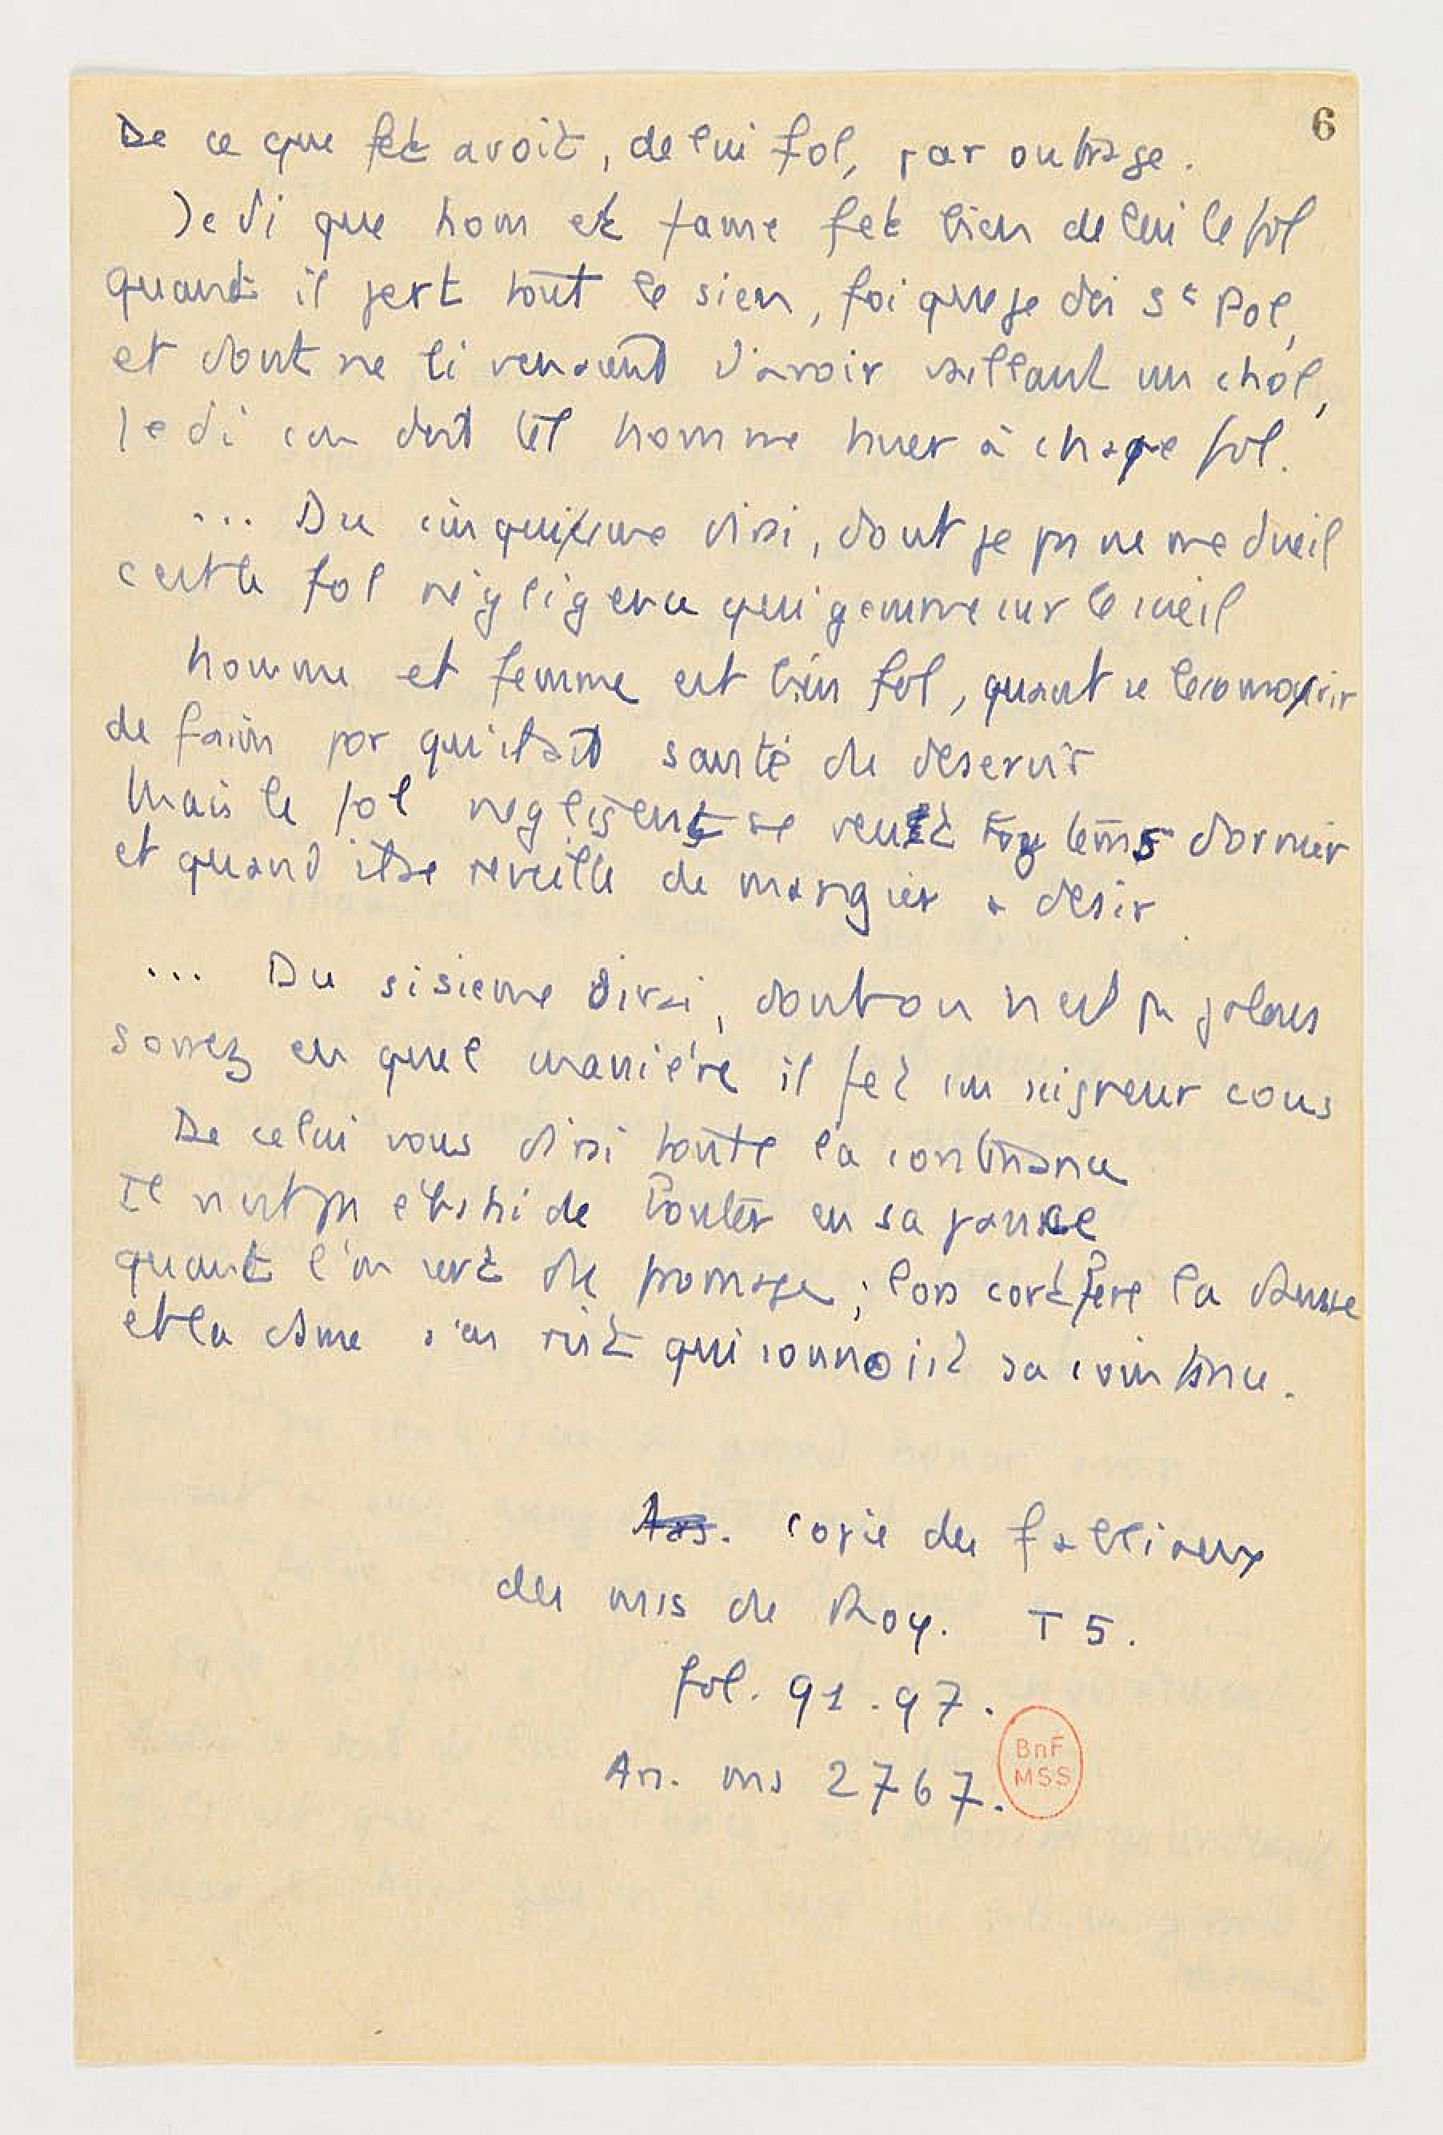 6
De ce que fet avoit, de lui fol, par outrage.
Je di que hom et fame fet bien de lui le fol
quant il pert tout le sien, foi que je doi St Pol,
et dont ne li vendroit d'avoir vaillant un chol,
Je di con doit tel homme huer à chape fol.
... Du cinquixime dirai, dont je pas ne me dueil
c'est le fol négligence qui gomme sur le cueil
homme et femme est bien fol, quant se lesse morir
de faim por qu'il ait santé de deservir
Mais le fol negligent se veult toz tems dormir
et quand il se reveille de mangier a desir
... Du sisieme dirai, dont on n'est pas jalous
Sovez en quel manière il fet un seigneur cous
De celui vous dirai toute la contenance
Il n'est pas esbahi de bouter en sa panse
quant l'on sert de fromage ; lors cort fere la danse
et la dame s'en rist qui connoist sa cointance.
Ars. copie de fabliaux
des mss de Roy. T 5.
fol. 91.97.
Ars. ms 2767.
BnF
MSS